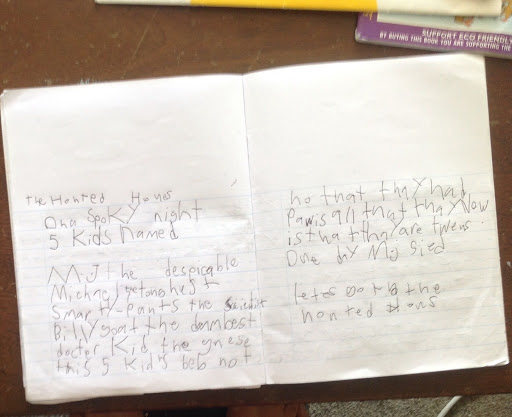 SUPPORT ECO FRIENDLY
BY BUYING THIS BOOK YOU ARE SUPPORTING THE
The Honted Hones
Ona SpoKy night
5 Kids named
MJ the despicable
Michael
Smarty-pants the
Billy goat the dambest
doctor Kid the
this 5 Kids beb not
ho that thay had
Pawis all that thay Now
is that thay are twens
One ay Mj Sied
letes go to the
honted